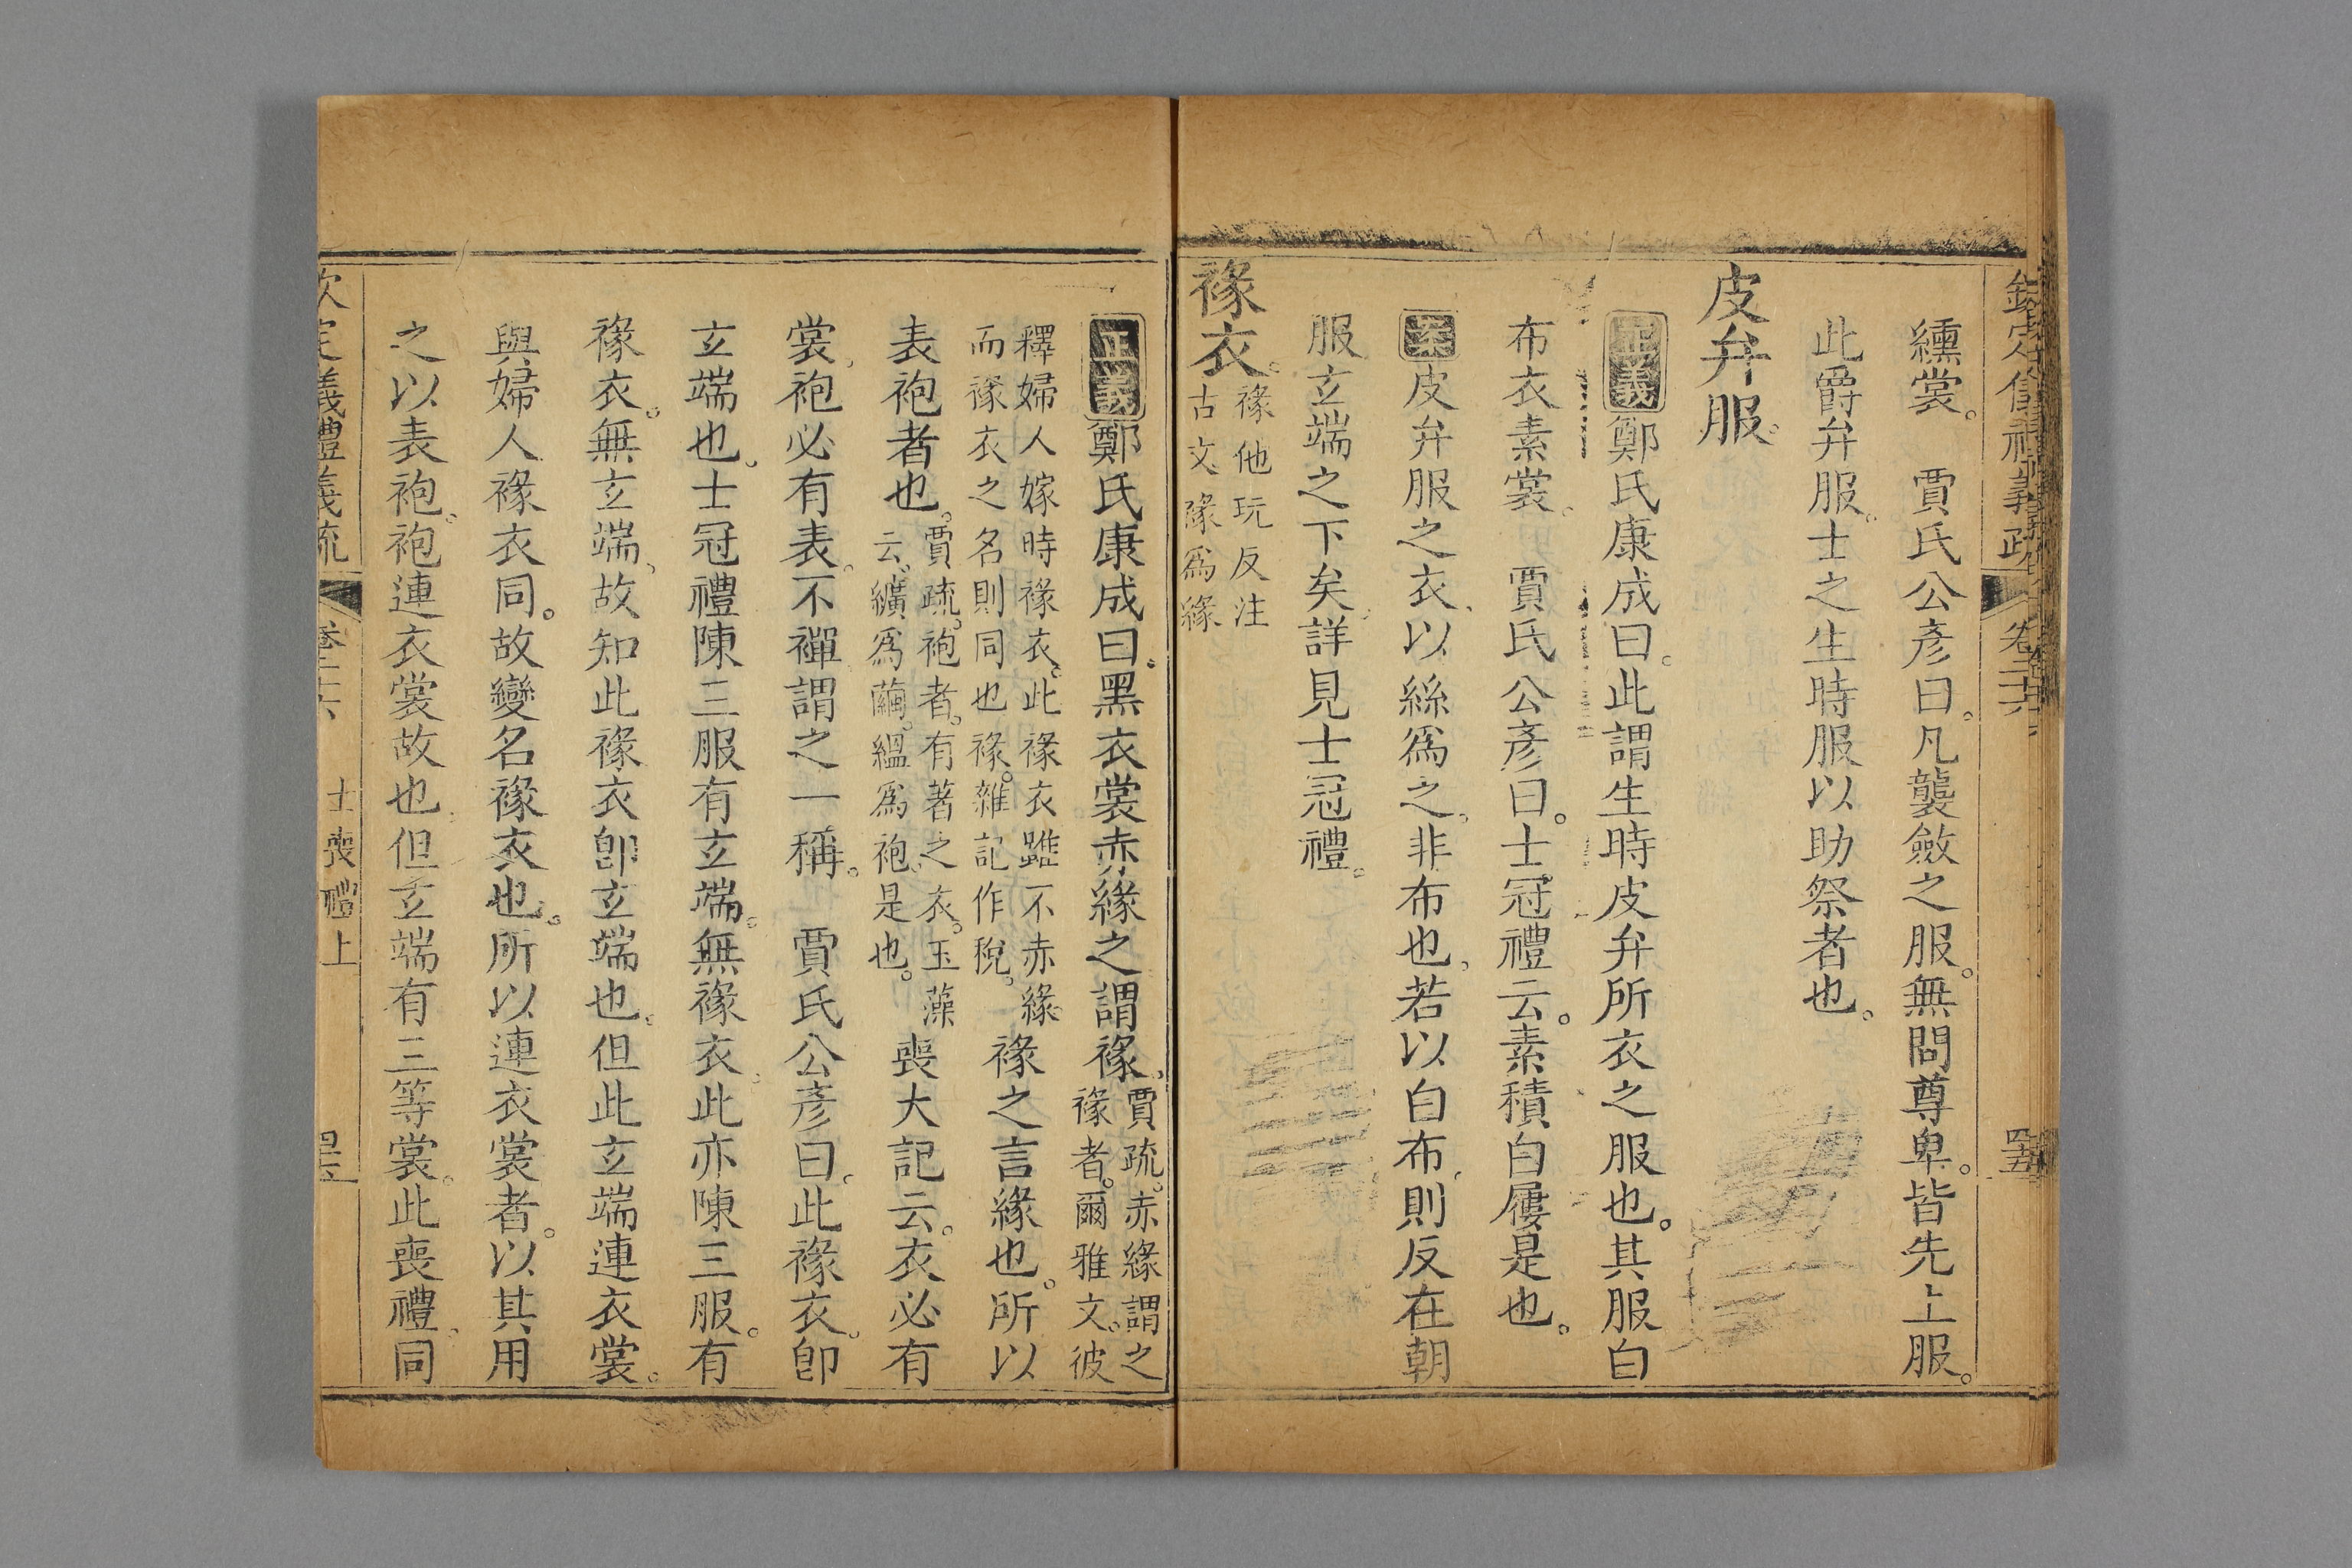 纁裳。 賈氏公彥曰。凡襲斂之服。無問尊卑。皆先上服。
此爵弁服。士之生時服以助祭者也。
皮弁服。
正義鄭氏康成曰。此謂生時皮弁所衣之服也。其服白
布衣素裳。 賈氏公彥曰。士冠禮云。素積白屨是也。
案皮弁服之衣、以絲爲之。非布也、若以白布、則反在朝
服玄端之下矣、詳見士冠禮。
褖衣。褖他玩反注
古文褖爲緣
正義鄭氏康成曰。黑衣裳赤緣之謂褖、賈疏。赤緣謂之
褖者。爾雅文。彼
釋婦人嫁時褖衣。此褖衣雖不赤緣
而褖衣之名則同也褖。雜記作稅。
褖之言緣也。所以
表袍者也。賈疏。袍者。有著之衣。玉藻
云。纊爲繭。緼爲袍。是也。
喪大記云。衣必有
裳、袍必有表。不襌謂之一稱。 賈氏公彥曰。此褖衣。卽
玄端也。士冠禮陳三服有玄端。無褖衣。此亦陳三服。有
褖衣。無玄端、故知此褖衣卽玄端也。但此玄端連衣裳。
與婦人褖衣同。故變名褖衣也。所以連衣裳者。以其用
之以表袍。袍連衣裳故也。但玄端有三等裳。此喪禮、同
士喪禮上